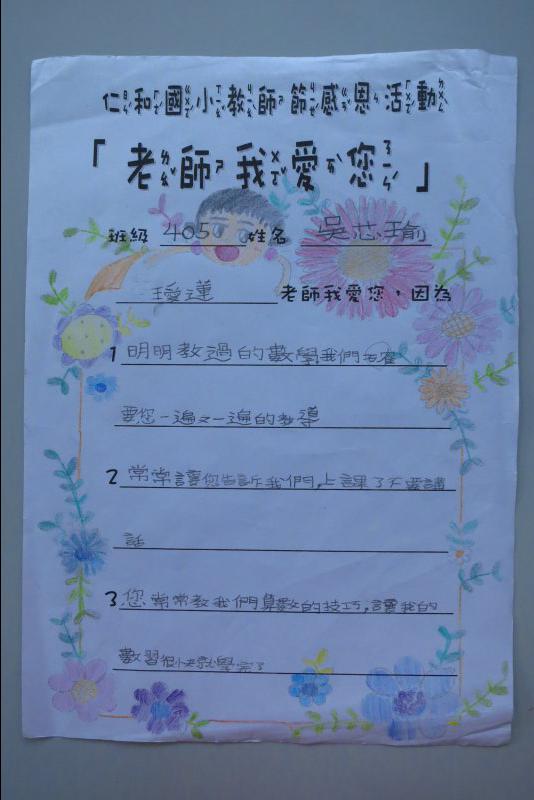 仁和國小教師節感恩活動
「老師我愛您」
班級 405 姓名 吳芯瑜
璦蓮 老師我愛您，因為
1 明明教過的數學,我們卻需
要您一遍又一遍的教導
2 常常讓您告訴我們,上課了不要講
話
3 您常常教我們算數的技巧,讓我的
數習很快就學完了